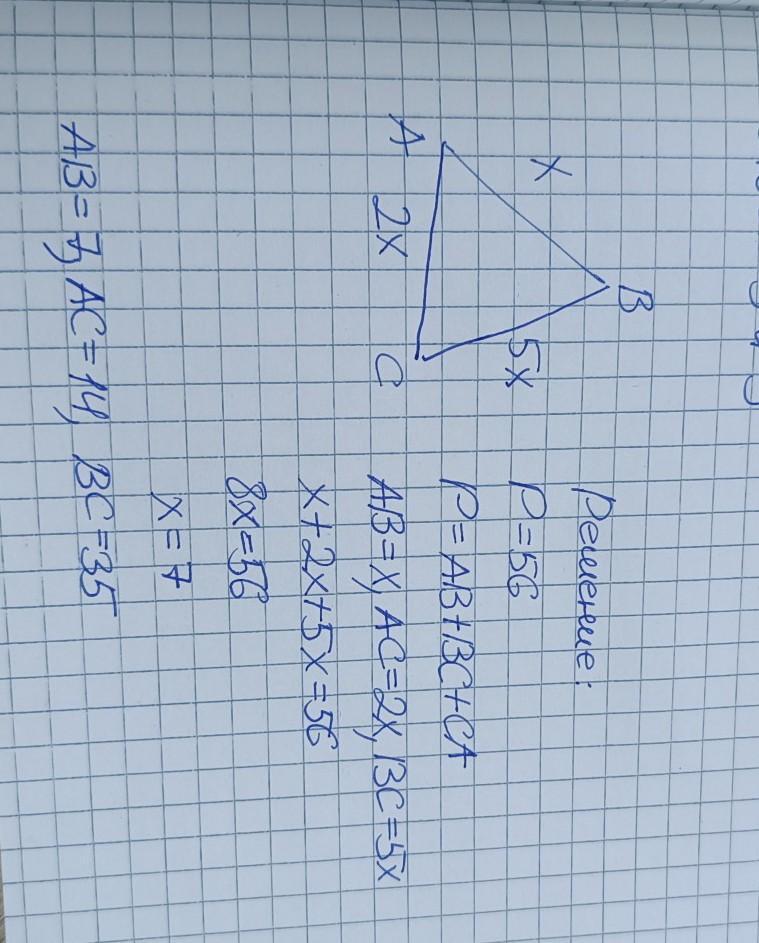 B
x
5x
A
2x
C
Решение:
P=56
P=AB+BC+CA
AB=x, AC=2x, BC=5x
x+2x+5x=56
8x=56
x=7
AB=7, AC=14, BC=35